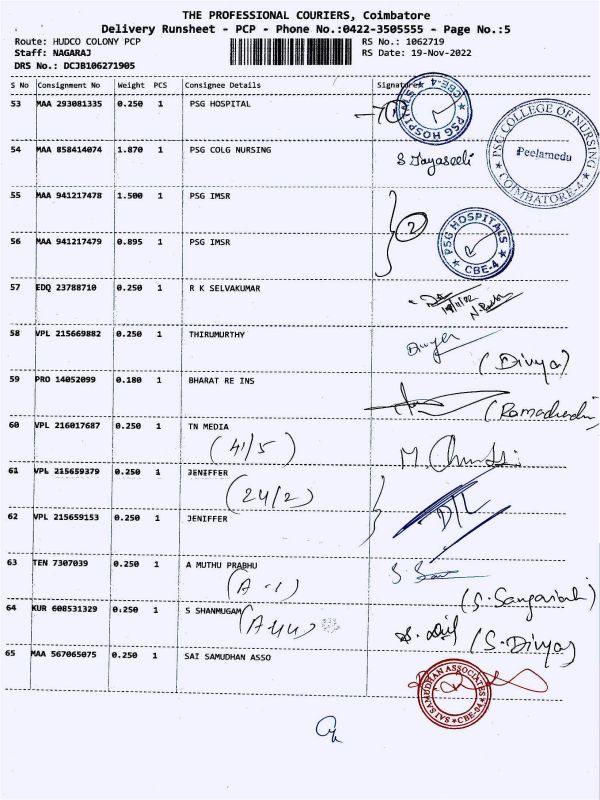 THE PROFESSIONAL COURIERS, Coimbatore
Delivery Runsheet - PCP - Phone No.:0422-3505555 - Page No.:5
Route: HUDCO COLONY PCP RS No.: 1062719
Staff: NAGARAJ RS Date: 19-Nov-2022
DRS No.: DCJB106271905
S No Consignment No Weight PCS Consignee Details Signature
53 MAA 293081335 0.250 1 PSG HOSPITAL
PSG HOSPITALS CBE-4
54 MAA 858414074 1.870 1 PSG COLG NURSING S Jayaseeli
PSG COLLEGE OF NURSING Peelamedu COIMBATORE-4
55 MAA 941217478 1.500 1 PSG IMSR
2
56 MAA 941217479 0.895 1 PSG IMSR
PSG HOSPITALS CBE-4
57 EDQ 23788710 0.250 1 R K SELVAKUMAR
58 VPL 215669882 0.250 1 THIRUMURTHY
(Divya)
59 PRO 14052099 0.180 1 BHARAT RE INS
60 VPL 216017687 0.250 1 TN MEDIA
(41/5)
61 VPL 215659379 0.250 1 JENIFFER
(24/2)
62 VPL 215659153 0.250 1 JENIFFER
63 TEN 7307039 0.250 1 A MUTHU PRABHU
(A-1)
64 KUR 608531329 0.250 1 S SHANMUGAM
(A44)
(S.Divya)
65 MAA 567065075 0.250 1 SAI SAMUDHAN ASSO
SAI SAMUDHAN ASSOCIATES CBE-04